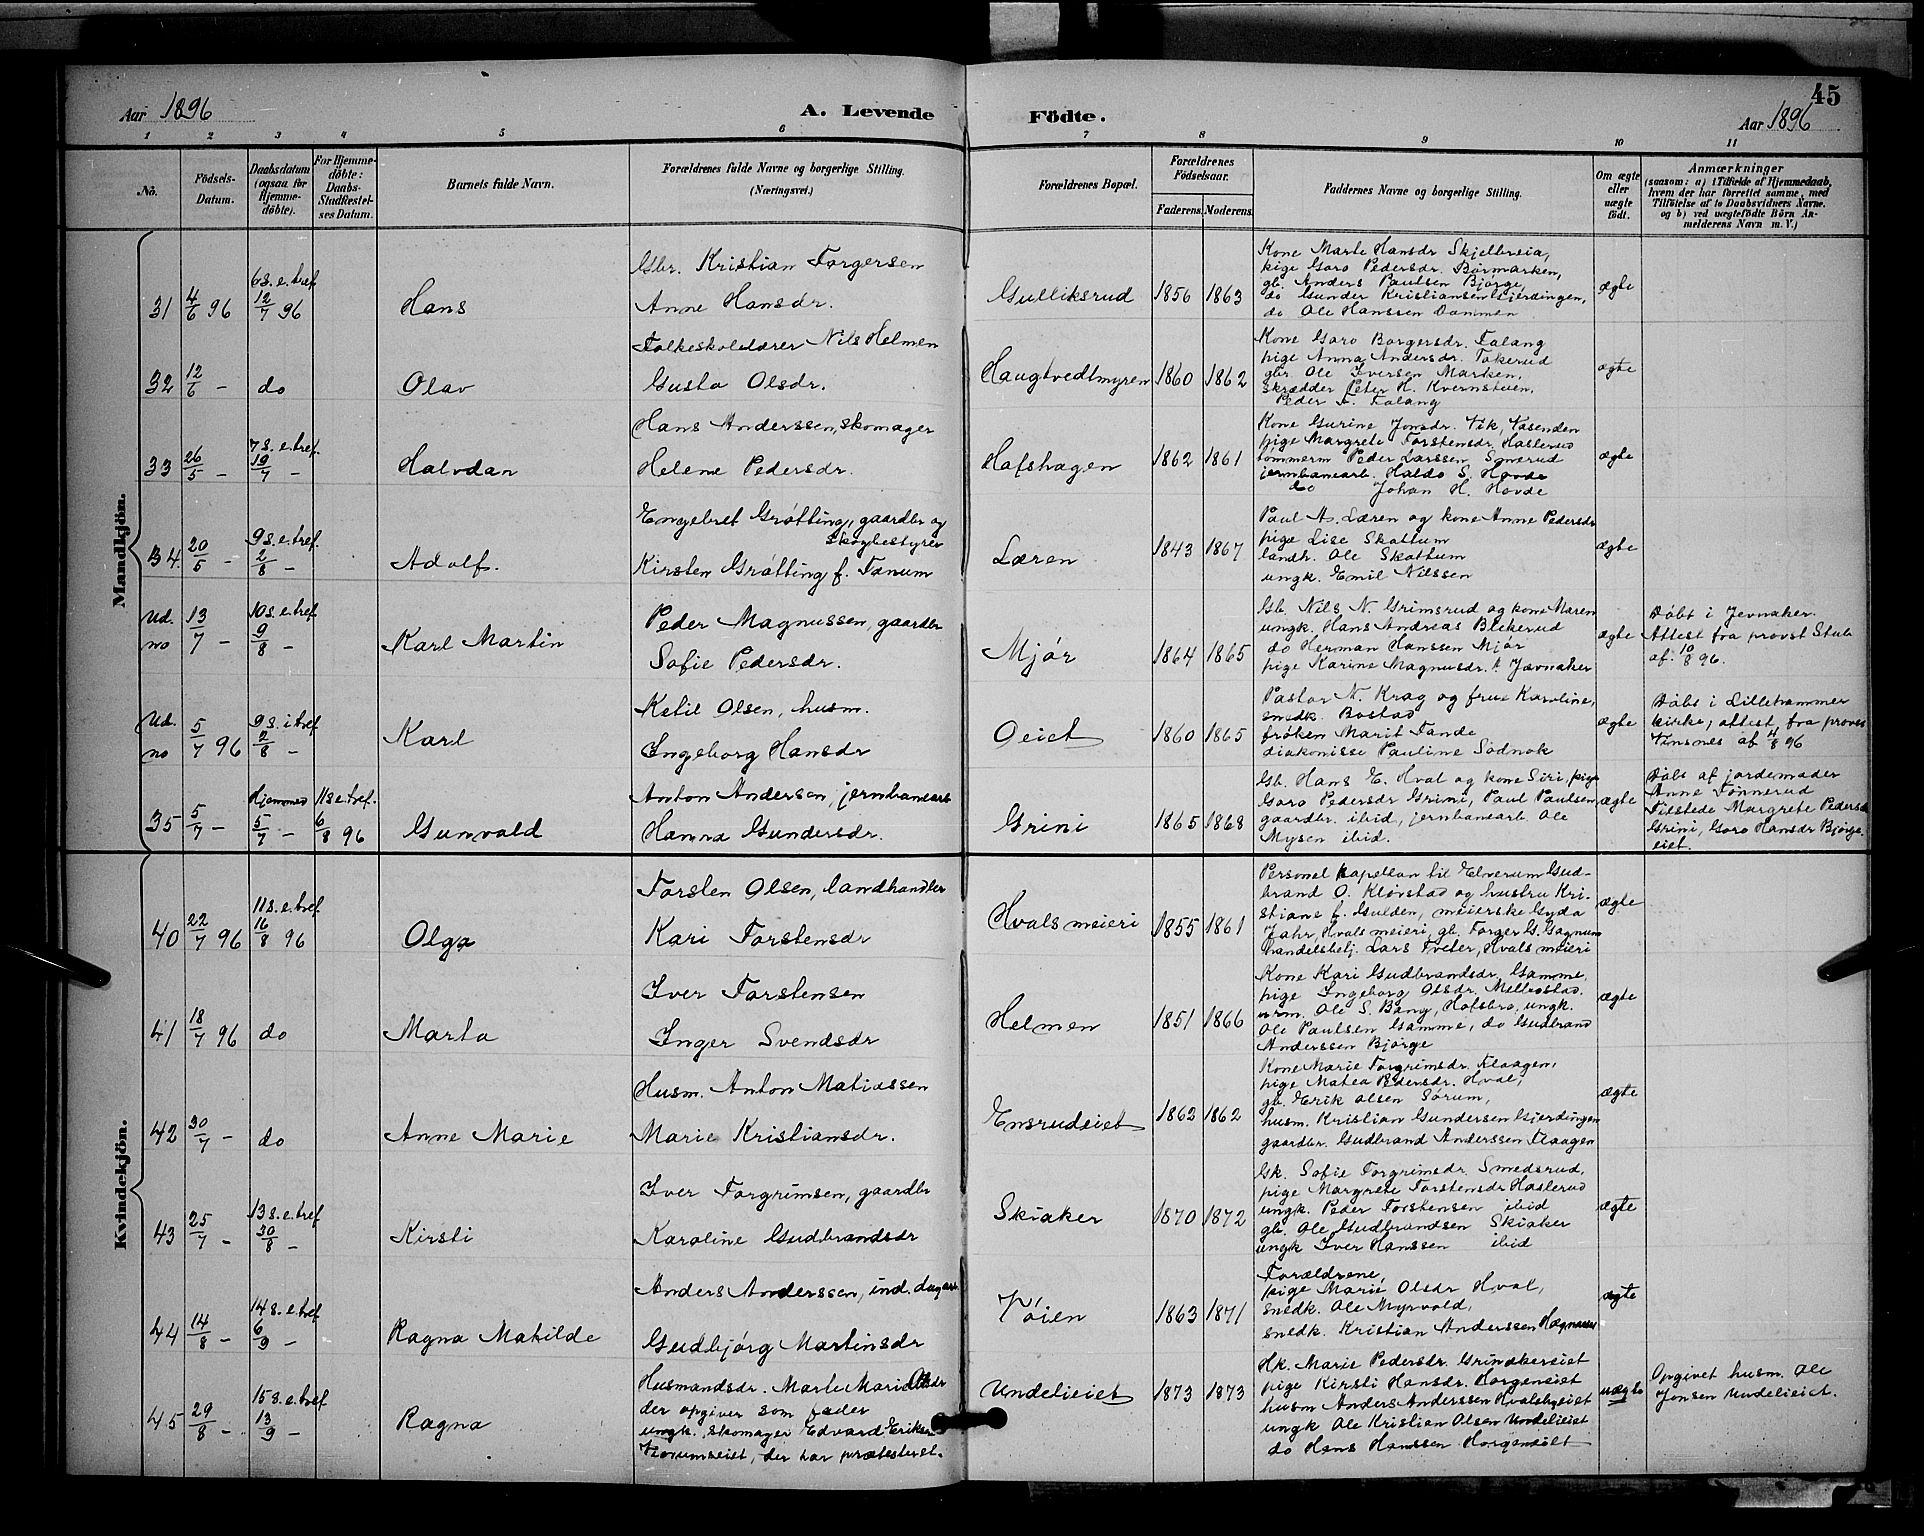 45
Aar 1896
A. Levende
Födte.
Aar 1896
1 2 3 4 5 6 7 8 9 10 11
No.
Födsels-
Datum.
Daabsdatum
(ogsaa for
Hjemme-
döbte).
For Hjemme-
döbte:
Daabs-
Stadfæstel-
ses Datum.
Barnets fulde Navn.
Forældrenes fulde Navne og borgerlige Stilling.
(Næringsvei.)
Forældrenes Bopæl.
Forældrenes
Födselsaar.
Faderens. Moderens.
Faddernes Navne og borgerlige Stilling.
Om ægte
eller
uægte
födt.
Anmærkninger
(saasom: a) i Tilfælde af Hjemmedaab,
hvem der har forrettet samme, med
Tilföielse af to Daabsvidners Navne,
og b) ved uægtefödte Börn An-
melderens Navn m. V.)
Mandkjön.
31 4/6 96
6 s. e. tref.
12/7 96
Hans
Gbr. Kristian Torgersen
Anne Hansdr.
Gulliksrud 1856 1863
Kone Marte Hansdr Skjelbreia,
pige Goro Pedersdr. Børmarken,
gb. Anders Paulsen Bjørge,
do Gunder Kristiansen Gjerdingen,
do Ole Hanssen Dammen
ægte
32 12/6 - do
Olav
Folkeskolelærer Nils Helmen
Gusta Olsdr.
Haugtvedtmyren 1860 1862
Kone Goro Borgersdr. Falang
pige Anna Andersdr. Tokerud
gbr. Ole Iversen Marken,
skrædder Peter H. Kvernstuen,
Peder T. Falang
ægte
33 26/5 -
7 s. e. tref.
19/7 -
Halvdan
Hans Anderssen, skomager
Helene Pedersdr.
Hofshagen 1862 1861
Kone Gurine Jonsdr. Vik Vasenden
pige Margrete Torstensdr. Haslerud
tømmerm Peder Larssen Smerud
jernbanearb. Haldo S. Hovde
do Johan H. Hovde
ægte
34 20/5 -
9 s. e. tref.
2/8 -
Adolf.
Engebret Grøtting, gaardbr og
skogbestyrer
Kirsten Grøtting f. Tanum
Læren 1843 1867
Paul A. Læren og kone Anne Pedersdr
pige Lise Skattum
landh. Ole Skattum
ungk. Emil Nilssen
ægte
Ud.
no
13/7 -
10 s. e. tref.
9/8 -
Karl Martin
Peder Magnussen, gaardbr
Sofie Pedersdr.
Mjør 1864 1865
Gb. Nils N. Grimsrud og kone Maren
ungk. Hans Andreas Blekerud
do Herman Hanssen Mjør
pige Karine Magnusdr. t. Jævnaker
ægte
Døbt i Jevnaker.
Attest fra provst Stub
af 10/8 96.
Ud.
no
5/7 96
9 s. i tref
2/8 -
Karl
Ketil Olsen, husm.
Ingeborg Hansdr
Oeiet 1860 1865
Pastor N. Krag og frue Karoline,
snedk. Bostad
frøken Marit Tande
diakonisse Pauline Sødnok
ægte
Døbt i Lillehammer
kirke, attest fra provst
af 4/8 96
35 5/7 -
Hjemmed
5/7 -
11 s e. tref.
6/8 96
Gunvald
Anton Andersen, jernbanearb
Hanna Gundersdr.
Grini 1865 1868
Gb. Hans E. Hval og kone Siri, pige
Goro Pedersdr Grini, Paul Paulsen
gaardbr. ibid, jernbanearb. Ole
Mysen ibid.
ægte
Døbt af jordemoder
Anne Tønnerud
Tilstede Margrete Pedersdr
Grini, Goro Hansdr Bjørge-
eiet.
Kvindekjön.
40 22/7 96
11 s. e. tref.
16/8 96
Olga
Torsten Olsen, landhandler
Kari Torstensdr
Hvals meieri 1855 1861
Personel kapellan til Elverum Gud-
brand O. Kløvstad og hustru Kri-
stiane f. Gulden, meierske Gyda
Jahr, Hvals meieri, gb. Torger G. Gagnum
handelsbetj. Lars Tveter, Hvals meieri
ægte
41 18/7 96 do
Marta
Iver Torstensen
Inger Svendsdr
Helmen 1851 1866
Kone Kari Gudbrandsdr. Gamme,
pige Ingeborg Olsdr. Mellostad.
urm. Ole S. Bang, Hofsbro, ungk.
Ole Paulsen Gamme, do Gudbrand
Anderssen Bjørge
ægte
42 30/7 - do
Anne Marie
Husm. Anton Matiassen
Marie Kristiansdr.
Ensrudeiet 1862 1862
Kone Marie Torgrimsdr. Flaagen,
pige Matea Pedersdr. Hval,
gb. Erik Olsen Sørum,
husm. Kristian Gundersen Gjerdingen
gaardbr. Gudbrand Anderssen Flaagen
ægte
43 25/7 -
13 s. e. tref
30/8 -
Kirsti
Iver Torgrimsen, gaardbr
Karoline Gudbrandsdr
Skiaker 1870 1872
Gk. Sofie Torgrimsdr. Smedsrud,
pige Margrete Torstensdr Haslerud
ungk. Peder Torstensen ibid
gb. Ole Gudbrandsen Skiaker
ungk Iver Hanssen ibid
ægte
44 14/8 -
14 s. e. tref
6/9 -
Ragna Matilde
Anders Anderssen, ind. dagarb.
Gudbjørg Martinsdr
Tøien 1863 1871
Forældrene,
pige Marie Olsdr Hval,
snedk. Ole Myrvold,
snedk. Kristian Anderssen
ægte
45 29/8 -
15 s. e. tref
13/9 -
Ragna
Husmandsdr. Marte Marie Olsdr
der opgiver som fader
ungk. skomager Edvard Eriksen
der har protesteret.
Undelieiet 1873 1873
Hk. Marie Pedersdr. Grinakereiet
pige Kirsti Hansdr. Horgeneiet
husm Anders Anderssen Hvalsbyeiet
ungk Ole Kristian Olsen Undelieiet
do Hans Hanssen Horgeneiet
uægte
Opgivet husm. Ole
Jonsen Undelieiet.